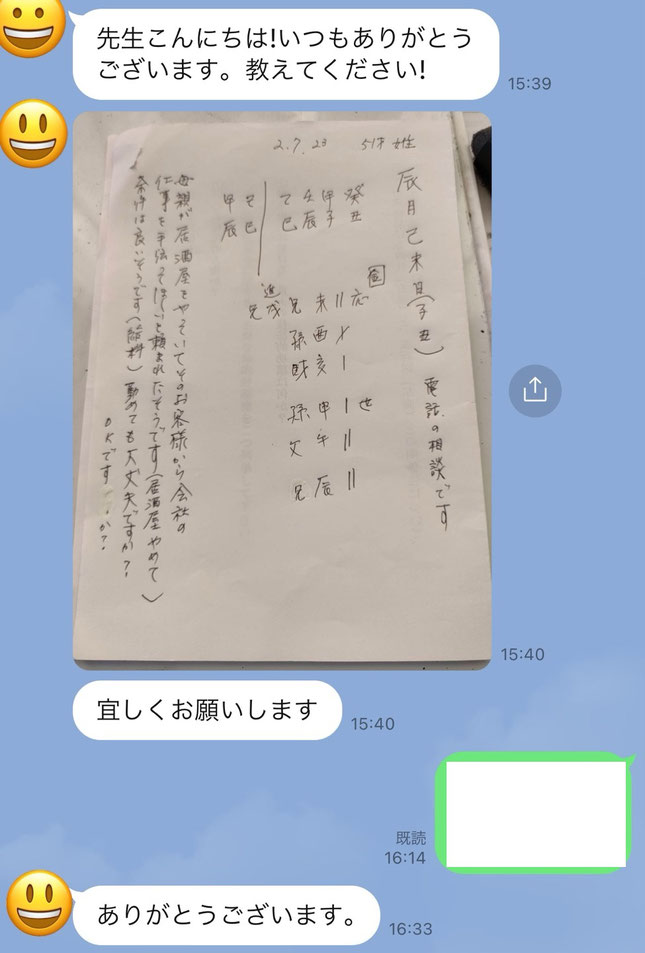 先生こんにちは!いつもありがとう
ございます。教えてください!
15:39
2.7.23 51才 女性
辰月己未日(子丑) 電話の相談です
癸丑
甲子
壬辰
乙巳
乙巳
甲辰
応 世
未酉亥申午辰
兄孫財孫父兄
兄
母親が居酒屋をやっていてそのお客様から会社の
仕事を手伝ってほしいと頼まれたそうです(居酒屋やめて)
条件は良いそうです(給料) 勤めても大丈夫ですか?
OKですか?
15:40
宜しくお願いします
15:40
既読
16:14
ありがとうございます。
16:33